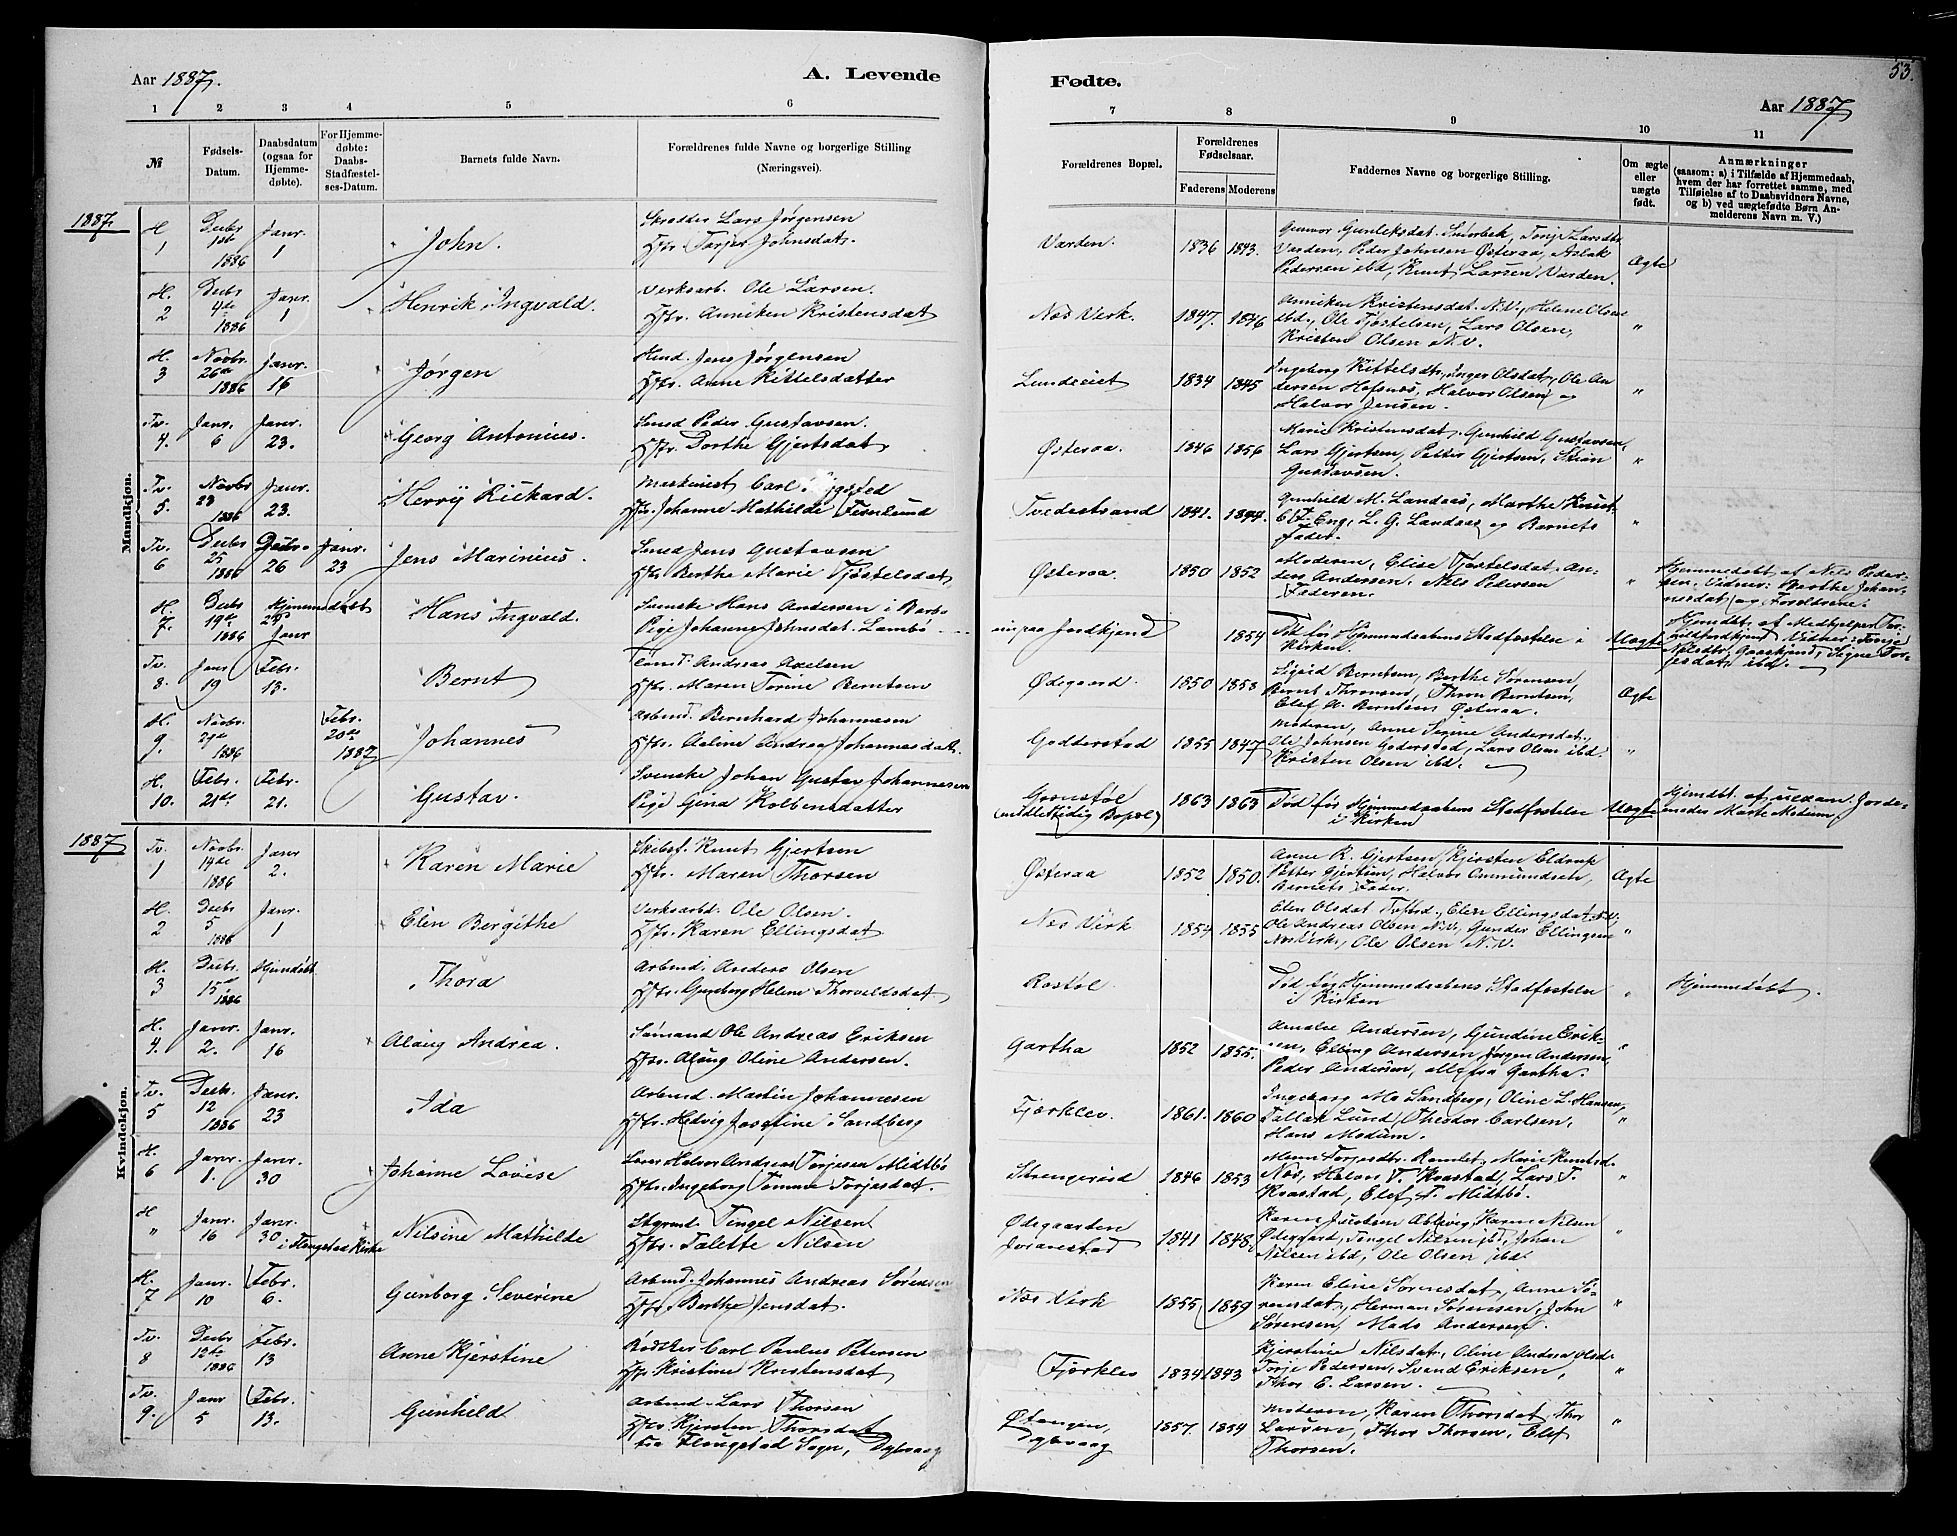 Aar 1887.
A. Levende
1 2 3 4 5 6
№
Fødsels-
Datum.
Daabsdatum
(ogsaa for
Hjemme-
døbte).
For Hjemme-
døbte:
Daabs-
Stadfæstel-
ses-Datum.
Barnets fulde Navn.
Forældrenes fulde Navne og borgerlige Stilling
(Næringsvei).
1887.
Mandkjøn.
H. 1 Decbr 1ste 1886 Janr. 1
John.
Skrædder Lars Jørgensen
Hstr. Torjer Johnsdat.
H. 2 Decbr 4de 1886 Janr. 1
Henrik Ingvald.
Verksarb. Ole Larsen.
Hstr. Anniken Kristensdat
H. 3 Novbr. 26de 1886 Janr. 16
Jørgen
Husd. Jens Jørgensen
Hstr. Anne Kittelsdatter
Tv. 4. Janr. 6 Janr. 23.
Georg Antonius.
Smed Peder Gustavsen.
Hstr. Dorthe Gjertsdat
Tv. 5. Novbr 23 1886 Janr. 23.
Herrij Rickard.
Maskinist Carl
Hstr. Johanne Mathilde
Tv. 6 Decbr 25 1886 Decbr. 26 Janr. 23
Jens Marinius.
Smed Jens Gustavsen
Hstr Berthe Marie Tjøstelsdat
H. 7. Decbr 19de 1886 Hjemmedøbt Janr
Hans Ingvald.
Svenske Hans Andersen i Barbo
Pige Johanne Johnsdat. Lambø
Tv. 8. Janr 19 Febr. 13.
Bernt
Tømt. Andreas Axelsen
Hstr. Maren Torine Berntsen
H. 9. Novbr. 1886 Febr. 20de 1887
Johannes
Arbmd. Bernhard Johannesen
Hstr. Aaline Andrea Johannesdat.
H. 10. Febr. 21de Febr. 21.
Gustav.
Svenske Johan Gustav Johannesen
Pige Gina Kolbensdatter
1887
Kvindekjøn.
Tv. 1 Novbr. 14de 1886 Janr 2.
Karen Marie
Skibsf. Knut Gjertsen
Hstr. Maren Thorsen
H. 2 Decbr 5 1886 Janr. 1
Elen Bergithe
Verksarbd. Ole Olsen.
Hstr. Karen Ellingsdat
H. 3 Decbr. 15de 1886 Hjemdøbt
Thora
Arbmd. Anders Olsen
Hstr. Gunborg Helene Thorvildsdat
H. 4. Janr. 2. Janr. 16
Alaug Andrea.
Sømand Ole Andreas Eriksen
Hstr. Alaug Oline Andersen.
Tv. 5 Decbr. 12 1886 Janr. 23
Ida
Arbmd. Martin Johannesen
Hstr. Hedvig Josefine Sandberg
H. 6 Janr. 1. Janr. 30
Johanne Lovise
Halvor Andreas Torjesen Midtbø
Hstr. Ingeborg Tomine Torjesdat.
H " Janr. 16 Janr. 30 i Flangstad Kirke
Nilsine Mathilde
Styrmd. Tengel Nilsen
Hstr. Talette Nilsen
H. 7 Janr. 10 Febr. 6.
Gunborg Severine
Arbmd. Johannes Andreas Sørensen
Hstr. Berthe Jensdat.
Tv. 8 Decbr 12te 1886 Febr. 13
Anne Kjerstine
Carl Paulus Petersen
Hstr Kristine Kristensdat
Tv. 9. Janr 5 Febr. 13.
Gunhild
Arbmd. Lars Thorsen
Hstr. Kjersten Thorsdat
fra Flangstad Sogn, Dybvaag
53.
Fødte.
Aar 1887
7 8 9 10 11
Forældrenes Bopæl.
Forældrenes
Fødselsaar.
Faderens Moderens
Faddernes Navne og borgerlige Stilling.
Om ægte
eller
uægte
født.
Anmærkninger
(saasom: a) i Tilfælde af Hjemmedaab,
hvem der har forrettet samme, med
Tilføielse af to Daabsvidners Navne,
og b) ved uægtefødte Børn An-
melderens Navn m. V.)
Varden. 1836 1843.
Gunvor Gunleksdat. Smørbek, Torje Larsdtr
Varden, Peder Johnsen Østeraa, Aslak
Pedersen ibd, Knut Larsen Varden.
Ægte
Næs Verk. 1847. 1846
Anniken Kristensdat. N.V., Helene Olsen
ibd., Ole Tjøstelsen, Lars Olsen,
Kristen Olsen N.V.
"
Lundeiet 1834 1845
Ingeborg Kittelsdtr, Inger Olsdat, Ole An
dersen Hofsnæs, Halvor Olsen og
Halvor Jensen.
"
Østeraa. 1846 1856
Marie Kristensdat. Gunhild Gustavsen,
Lars Gjertsen, Petter Gjertsen, Steen
Gustavsen.
"
Tvedestrand 1841. 1844.
Gunhild M. Landaas, Marthe Knut-
Eng, L. G. Landaas og Barnets
Fader.
"
Østeraa. 1850 1852
Moderen, Elise Tjøstelsdat. An-
ders Andersen. Nils Pedersen
Faderen.
"
Hjemmedøbt af Nils Peder-
sen. Vidner: Berthe Johan-
nesdat og Forældrene.
Jordkjend 1854
Død før Hjemmedaabens Stadfæstelse i
Kirken.
Uægte
Hjemdbt. af Medhjelper
Vidner: Torje
Nilsdtr. Gaaskjend, Signe Tor-
jesdat ibd.
Ødegaard. 1850 1853
Sigrid Berntsen, Berthe Sørensen
Bernt Thronsen, Thron Berntsen,
Elef A. Berntsen Østeraa.
Ægte
Godderstad 1855 1847
Moderen, Anne Sigine Andersdat.,
Ole Johnsen Goderstad, Lars Olsen ibd
Kristen Olsen ibd.
"
Grønstøl
(midlertidig Bopæl) 1863 1863
Død før Hjemmedaabens Stadfæstelse
i Kirken
Uægte
Hjemdbt. af uexam. Jorde-
moder Marte Modum
Østeraa 1852 1850.
Anne K. Gjertsen, Kjersten Eldrup
Petter Gjertsen, Halvor Ommundsen,
Barnets Fader.
Ægte
Næs Verk 1854 1855
Elen Olsdat., Elen Ellingsdat. N.V.
Ole Andreas Olsen N.V., Gunder Ellingsen
Næs Verk, Ole Olsen N.V.
"
Rostøl.
Død før Hjemmedaabens Stadfæstelse
i Kirken
"
Hjemmedøbt.
Gartha 1852 1855.
Amalie Andersen, Gundine Erik-
sen, Elling Andersen, Jørgen Andersen,
Peder Andersen, alle fra Gartha.
"
Fjærklev. 1861. 1860
Ingeborg Ma Sandberg, Oline L. Hansen,
Tallak Lund, Theodor Carlsen,
Hans Modum.
"
Strengereid 1846 1853
Torjesdtr. Ramlet, Marie Knutsd.
Næs, Halvor T. Kvastad, Lars T.
Kvastad, Elef T. Midtbø.
"
Ødegaarden
Goderestad 1841 1848.
Karen Justsen Askevig, Karen Nilsen
Ødegaard, Tengel Nilsen ibd, Johan
Nilsen ibd, Ole Olsen ibd.
"
Næs Verk 1855 1859
Karen Eline Sørensdat, Anne Sø-
rensdat, Herman Sørensen, John
Sørensen, Mads Andersen.
"
Fjærklev 1834 1843
Kjerstine Nilsdat, Oline Andrea Olsd.
Torje Pedersen, Svend Eriksen,
Thor E. Larsen.
"
Østangen,
Dybvaag 1857. 1854
Moderen, Karen Thorsdat. Thor
Larsen, Thor Thorsen, Elef
Thorsen.
"